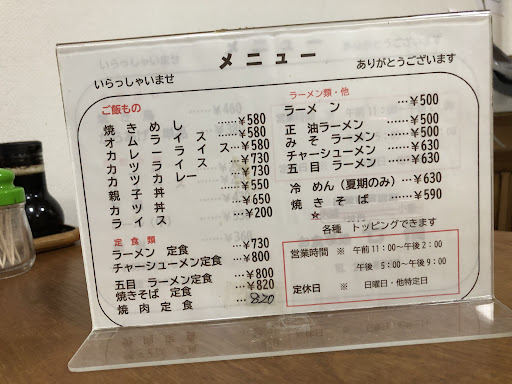 メニュー
いらっしゃいませ
ありがとうございます
ご飯もの
焼きめし ……¥580
オムライス ……¥580
カレーライス …¥580
カツライス ……¥730
カツカレー ……¥730
親子丼 ……¥550
カツ丼 ……¥650
ライス ……¥200
定食類
ラーメン 定食 …¥730
チャーシューメン定食 …¥800
五目 ラーメン定食 …¥800
焼きそば 定食 …¥820
焼肉定食 … 820
ラーメン類・他
ラーメン …¥500
正油ラーメン …¥500
みそラーメン …¥500
チャーシューメン …¥630
五目 ラーメン …¥630
冷めん(夏期のみ)…¥630
焼きそば …¥590
☆
各種 トッピングできます
営業時間 ※ 午前11:00~午後2:00
午後 5:00~午後9:00
定休日 ※ 日曜日・他特定日